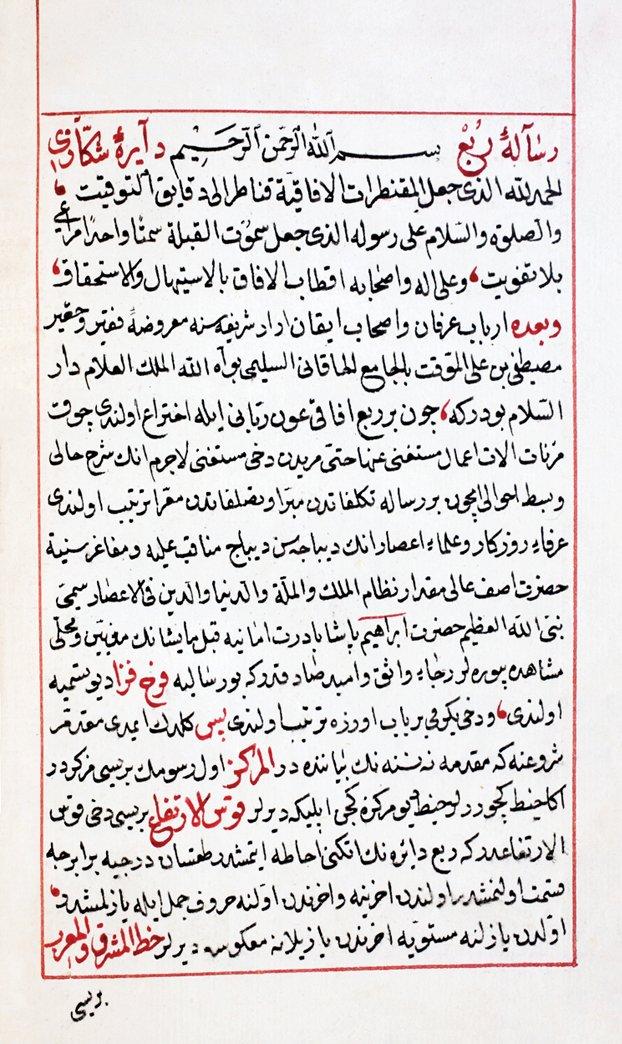 رساله ربع بسم الله الرحمن الرحيم دايره شكازى
الحمد لله الذى جعل المقنطرات الافاقية قناطر الى دقايق التوقيت
والصلوة والسلام على رسوله الذى جعل سموت القبلة سمتا واحدا
بلا تفويت وعلى اله واصحابه اقطاب الافاق بالاستيهال والاستحقاق
وبعده ارباب عرفان واصحاب ايقان اراد شريفه سنه معروضۀ فقير وحقير
مصطفى بن على الموقت بالجامع الخاقانى السليمى بوأه الله الملك العلام دار
السلام بودركه چون بر ربع افاقى عون ربانى ايله اختراع اولندى چوق
مستغنى عنها حتى مريدن دخى مستغنى لاجرم انك شرح حالى
وبسط احوالى ايچون بر رساله تكلفاتدن مبرا وتصلفاتدن معرا ترتيب اولندى
عرفاء روزكار وعلماء اعصار انك ديباجه سن ديباج مناقب عليه ومفاخر سنية
حضرت اصف عالى مقدار نظام الملك والملة والدنيا والدين فى الاعصار سمى
نبى الله العظيم حضرت ابراهيم پاشا
مشاهده بيوره لر رجاء واثق واميد صادقدركه بو رساليه فرح فزا ديو تسميه
اولندى ودخى يكرمى بر باب اوزره ترتيب اولندى پس كلدك ايمدى مقدمه
شروعنه كه مقدمه نه نسنه نك بياننده در المركز اول رسومك بريسى مركزدر
اكا خيط كچورر لر خيط ديو مركزه كچن ايپلكه ديرلر قوس الارتفاع بريسى دخى قوس
الارتفاعدر كه ربع دائره نك احاطه ايتمشدر طقسان درجيه برابر جه
قسمت اولنمشدر اولندن اخرينه واخرندن اولنه حروف جمل ايله يازلمشدر
اولدن يازلنه مستويه اخرندن يازيلانه معكوسه ديرلر خط المشرق والمغرب
بريسى